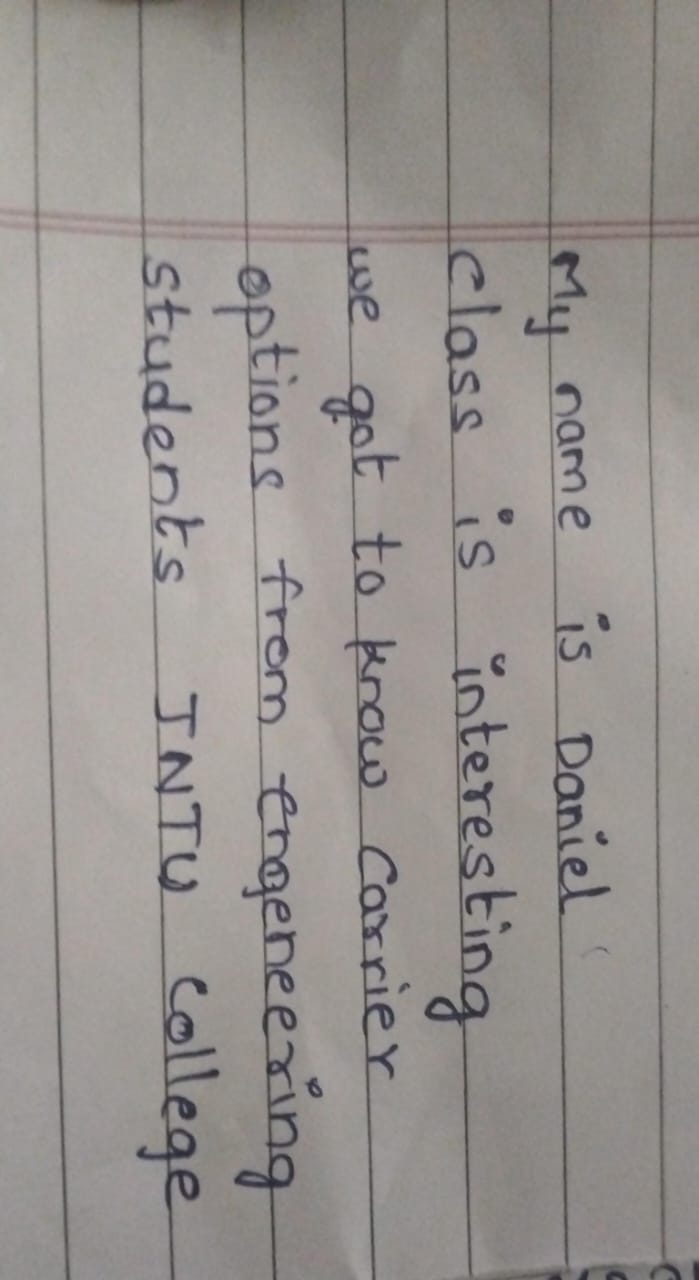 My name is Daniel
class is interesting
we got to know carrier
options from engeneering
students JNTU college